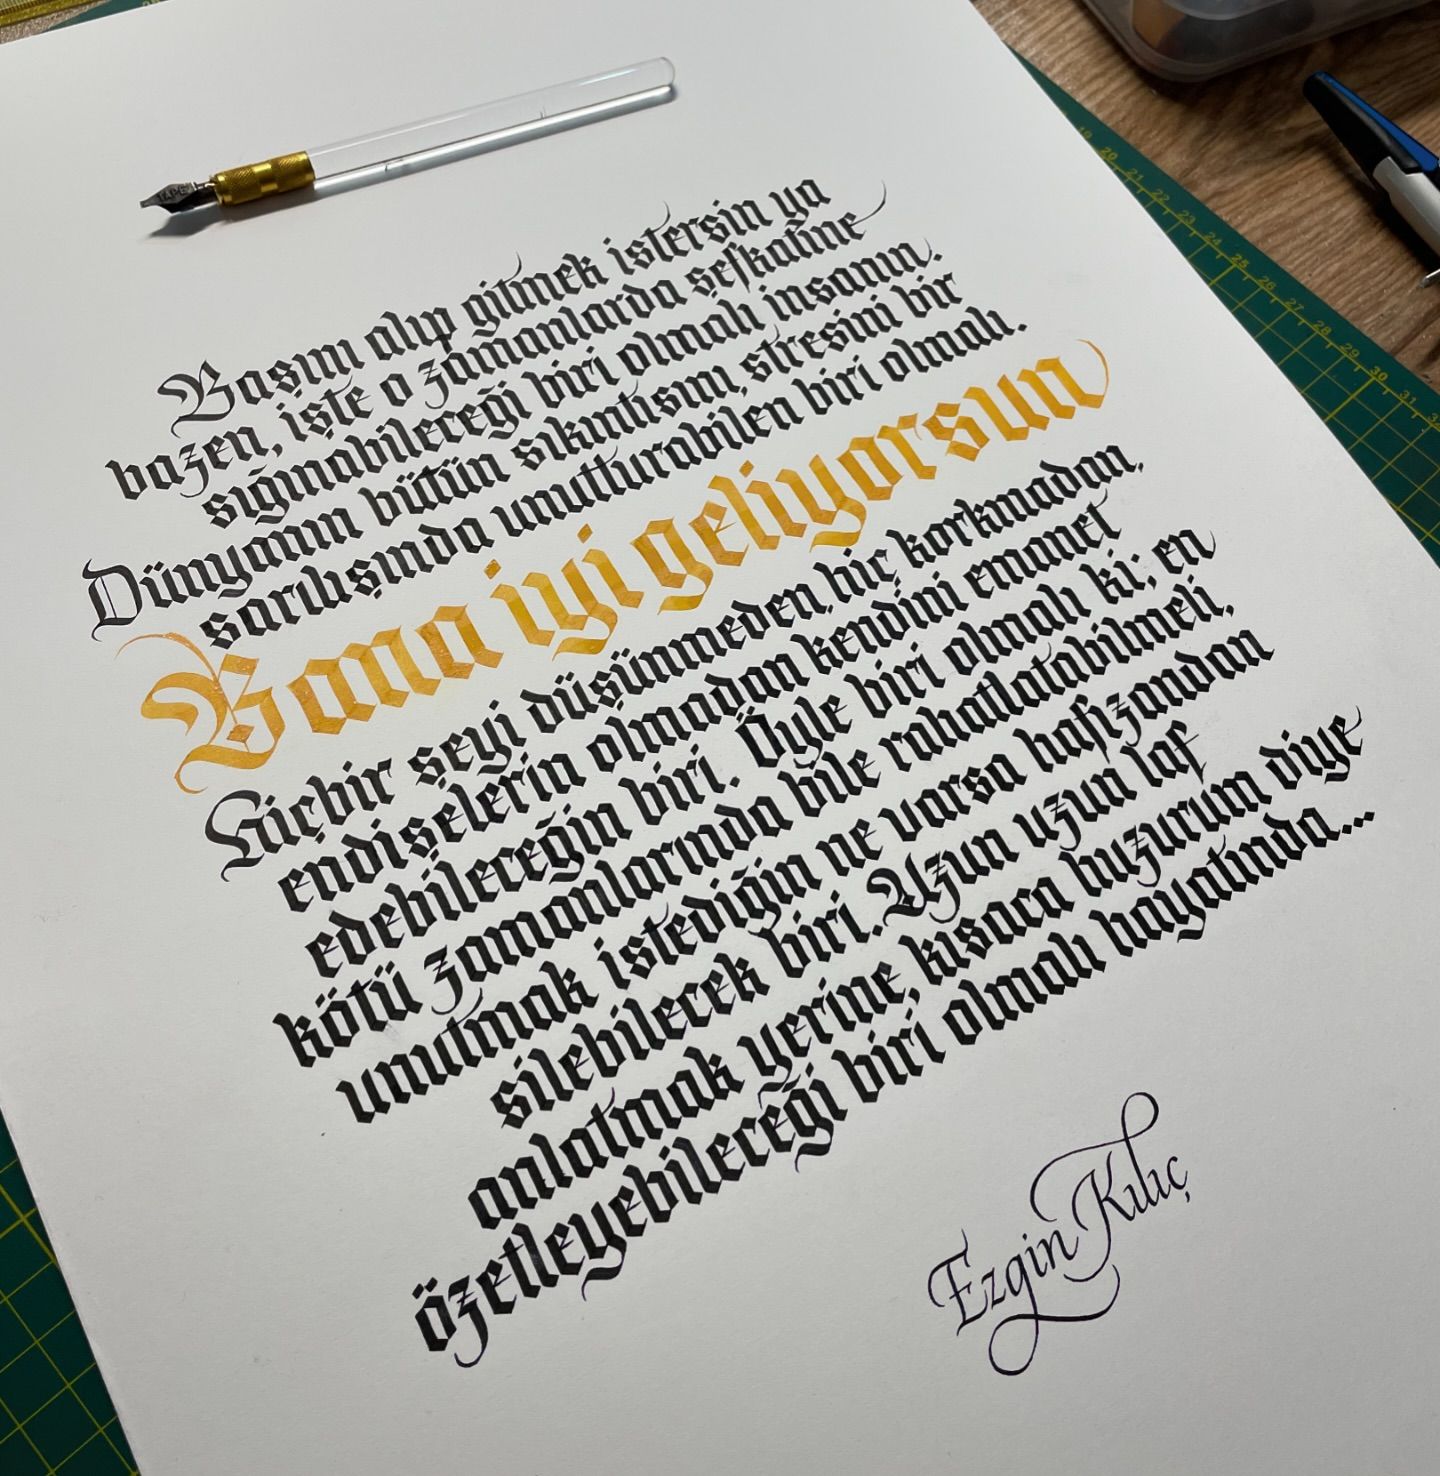 Başını alıp gitmek istersin ya
bazen, işte o zamanlarda şefkatine
sığınabileceği biri olmalı insanın.
Dünyanın bütün sıkıntısını, stresini bir
sarılışında unutturabilen biri olmalı.
Bana iyi geliyorsun
Hiçbir şeyi düşünmeden, hiç korkmadan,
endişelerin olmadan kendini emanet
edebileceğin biri. Öyle biri olmalı ki; en
kötü zamanlarında bile rahatlatabilmeli,
unutmak istediğin ne varsa hafızandan
silebilecek biri. Uzun uzun laf
anlatmak yerine, kısaca huzurum diye
özetleyebileceği biri olmalı hayatında...
Ezgin Kılıç
19 20 21 22 23 24 25 26 27 28 29 30 31